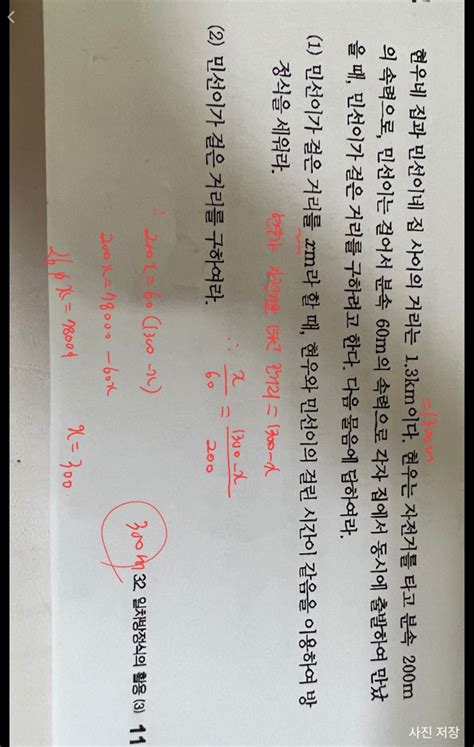 현우네 집과 민선이네 집 사이의 거리는 1.3km이다. 현우는 자전거를 타고 분속 200m
=1300m
의 속력으로, 민선이는 걸어서 분속 60m의 속력으로 각자 집에서 동시에 출발하여 만났
을 때, 민선이가 걸은 거리를 구하려고 한다. 다음 물음에 답하여라.
(1) 민선이가 걸은 거리를 xm라 할 때, 현우와 민선이의 걸린 시간이 같음을 이용하여 방
정식을 세워라.
현우가 자전거를 타고 간 거리 = 1300-x
∴ x/60 = 1300-x/200
(2) 민선이가 걸은 거리를 구하여라.
∴ 200x=60(1300-x)
200x=78000-60x
x=78000
x=300
300m
32 일차방정식의 활용 (3) 11
사진 저장